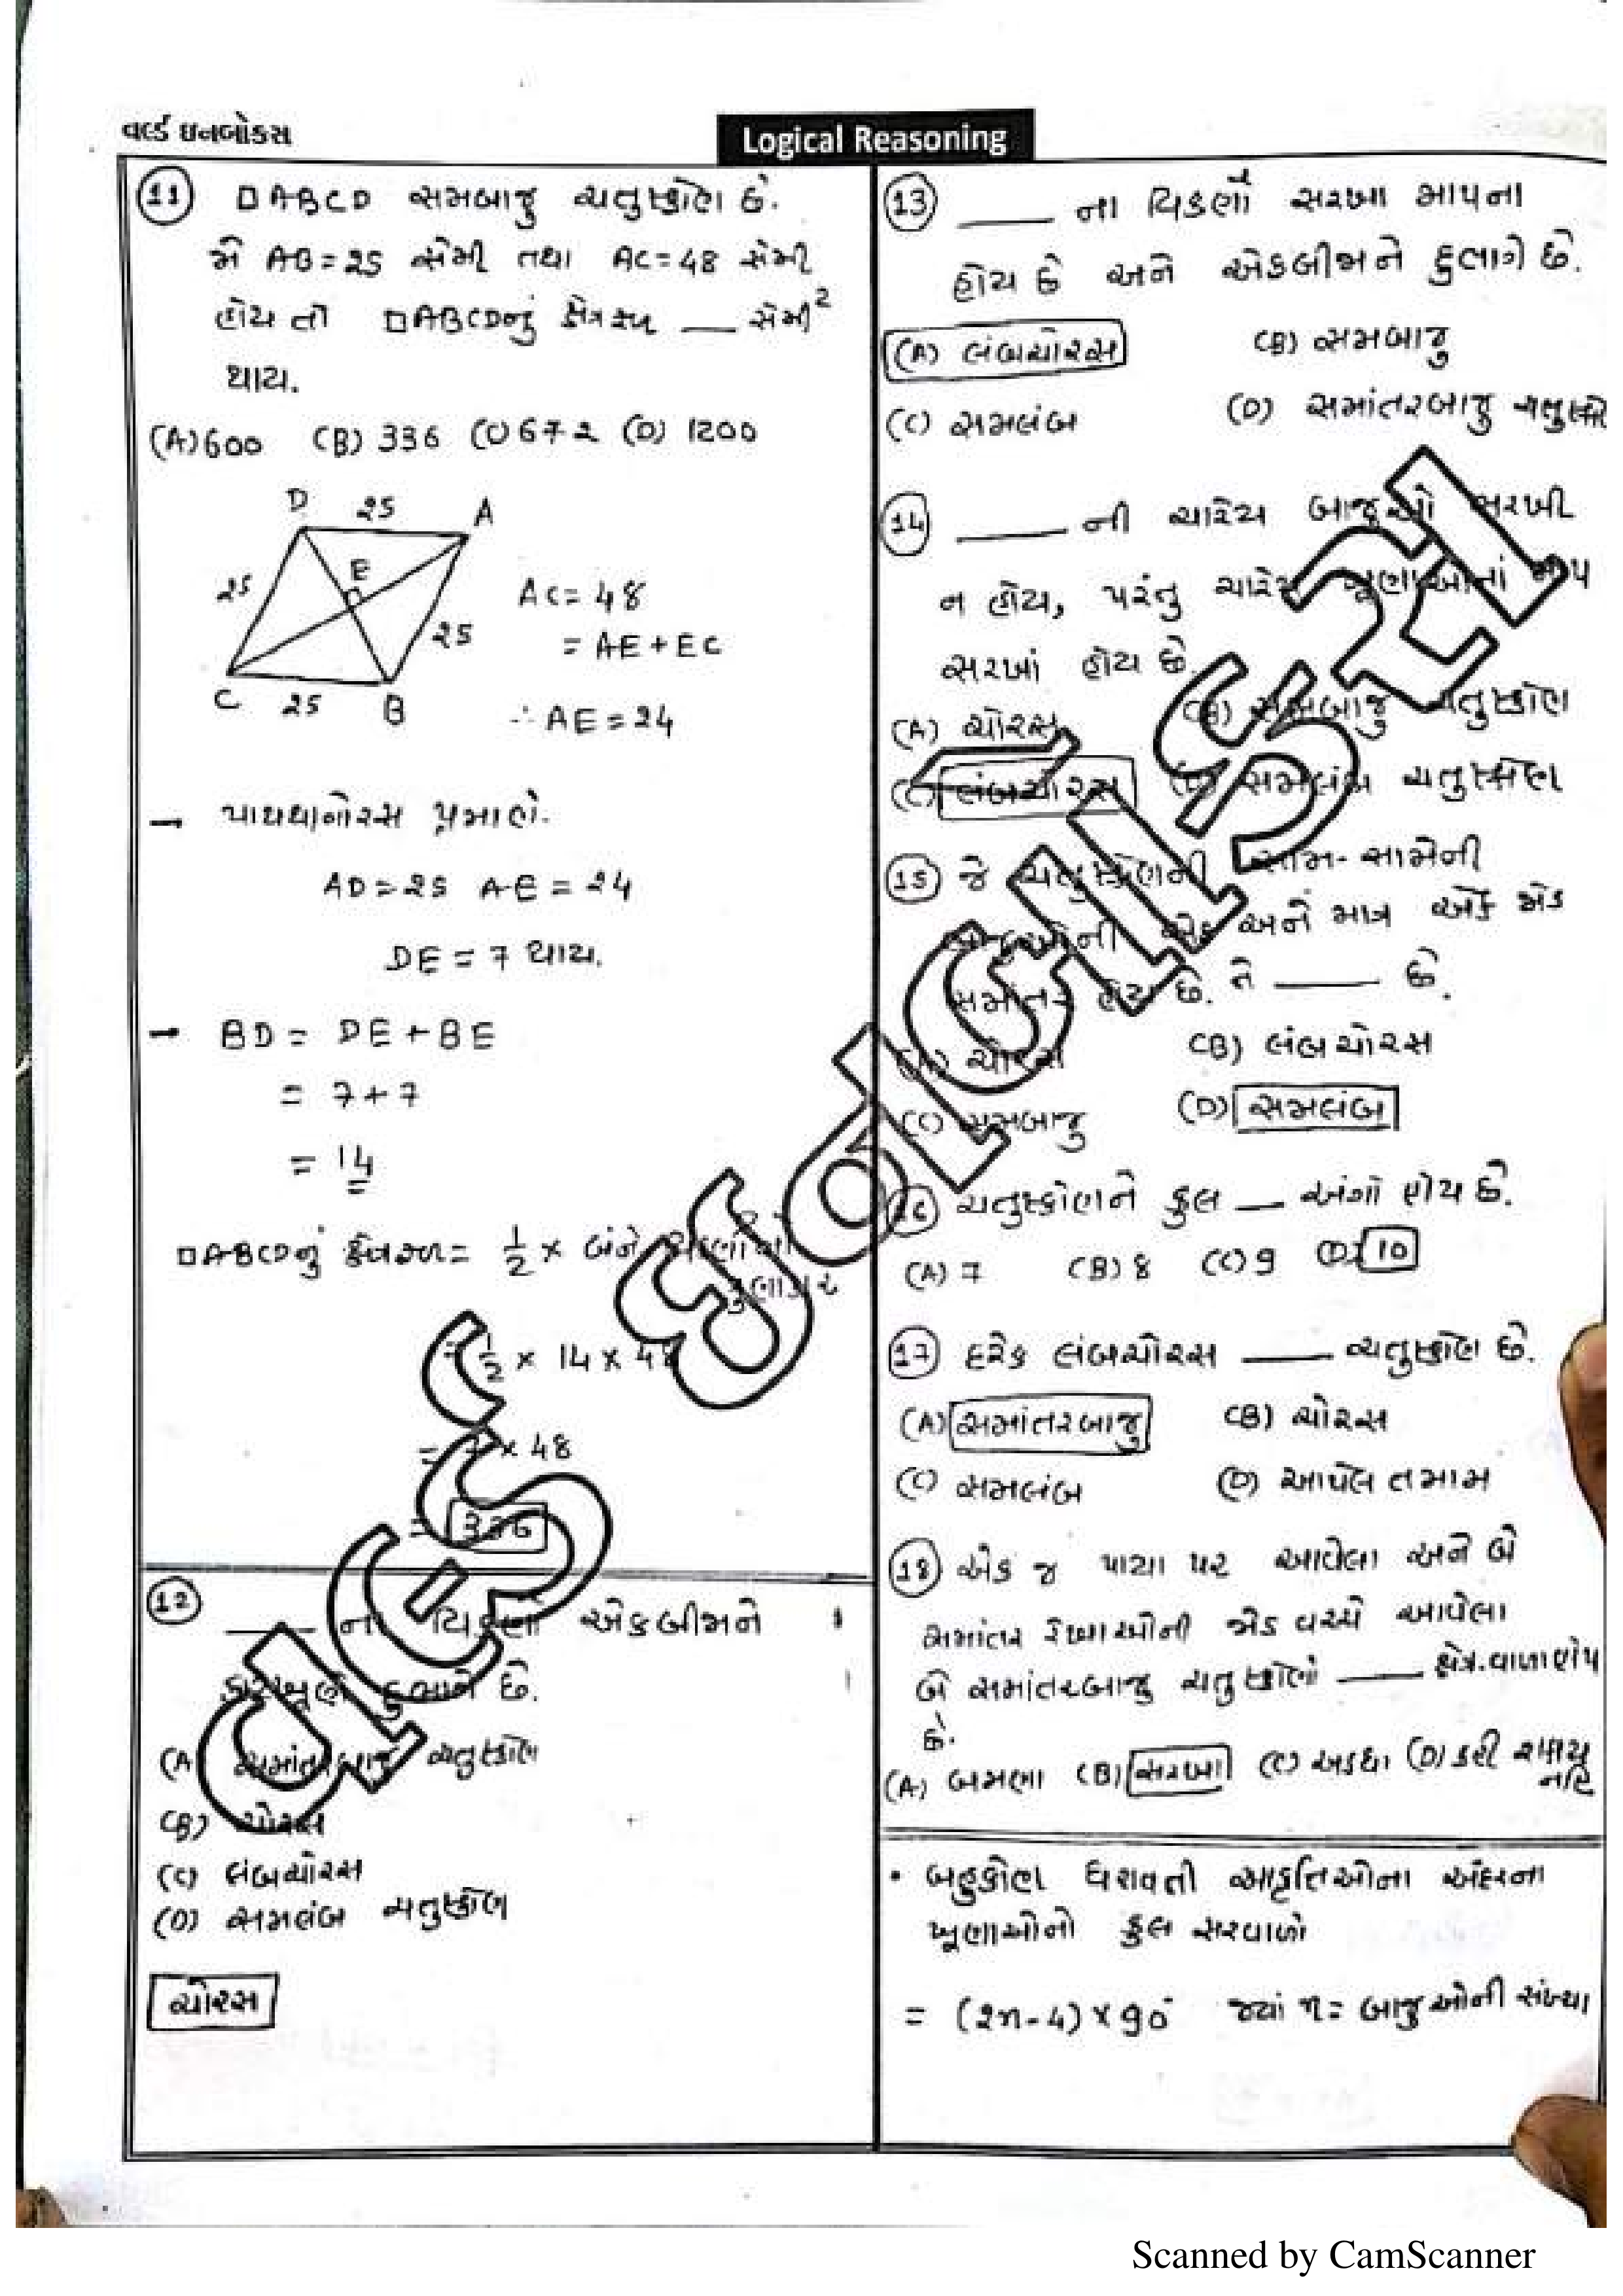 વર્લ્ડ ઇનબોકસ
Logical Reasoning
(11) □ABCD સમબાજુ ચતુષ્કોણ છે.
જો AB=25 સેમી તથા AC=48 સેમી
હોય તો □ABCDનું ક્ષેત્રફળ ___ સેમી²
થાય.
(A) 600 (B) 336 (C) 672 (D) 1200
D 25 A
25 E
25
C 25 B
AC = 48
= AE + EC
∴ AE = 24
→ પાયથાગોરસ પ્રમાણે.
AD = 25 AE = 24
DE = 7 થાય.
→ BD = DE + BE
= 7 + 7
= 14
□ABCDનું ક્ષેત્રફળ = 1/2 × બંને
ગુણાકાર
= 1/2 × 14 × 48
= 7 × 48
= 336
(12) ____ ના વિકર્ણો એકબીજાને
કાટખૂણે દુભાગે છે.
(A) સમાંતરબાજુ ચતુષ્કોણ
(B) ચોરસ
(C) લંબચોરસ
(D) સમલંબ ચતુષ્કોણ
ચોરસ
(13) ____ ના વિકર્ણો સરખા માપના
હોય છે અને એકબીજાને દુભાગે છે.
(A) લંબચોરસ (B) સમબાજુ
(C) સમલંબ (D) સમાંતરબાજુ ચતુષ્કો
(14) ____ ની ચારેય બાજુઓ સરખી
ન હોય, પરંતુ ચારેય ખૂણાઓનાં માપ
સરખાં હોય છે.
(A) ચોરસ (B) સમબાજુ ચતુષ્કોણ
(C) લંબચોરસ (D) સમલંબ ચતુષ્કોણ
(15) જે ચતુષ્કોણની સામ-સામેની
બાજુઓની એક અને માત્ર એક જોડ
સમાંતર હોય છે. તે ____ છે.
(A) ચોરસ (B) લંબચોરસ
(C) સમબાજુ (D) સમલંબ
(16) ચતુષ્કોણને કુલ __ અંગો હોય છે.
(A) 7 (B) 8 (C) 9 (D) 10
(17) દરેક લંબચોરસ ____ ચતુષ્કોણ છે.
(A) સમાંતરબાજુ (B) ચોરસ
(C) સમલંબ (D) આપેલ તમામ
(18) એક જ પાયા પર આવેલા અને બે
સમાંતર રેખાઓની જોડ વચ્ચે આવેલા
બે સમાંતરબાજુ ચતુષ્કોણો ____ ક્ષેત્ર.વાળા હોય
છે.
(A) બમણા (B) સરખા (C) અડધા (D) કહી શકાય
નહિ
• બહુકોણ ધરાવતી આકૃતિઓના અંદરના
ખૂણાઓનો કુલ સરવાળો
= (2n-4) × 90° જ્યાં n = બાજુઓની સંખ્યા
Scanned by CamScanner